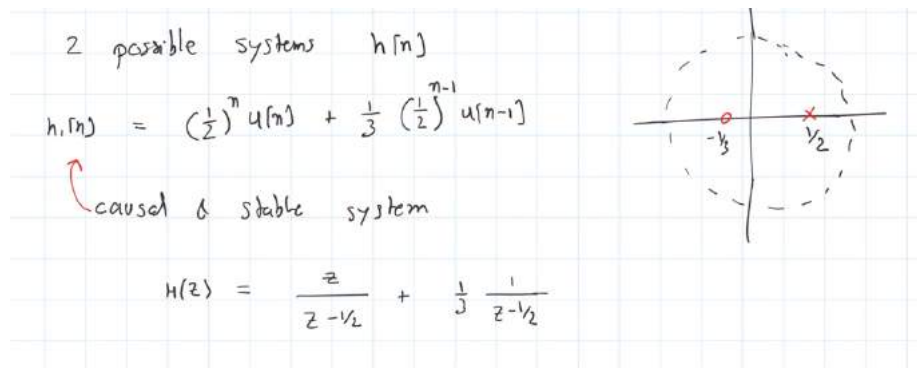 2 possible systems h[n]
h₁[n] = (1/2)ⁿ u[n] + 1/3 (1/2)ⁿ⁻¹ u[n-1]
causal & stable system
H(z) = z/(z - 1/2) + 1/3 1/(z - 1/2)
-1/3 1/2